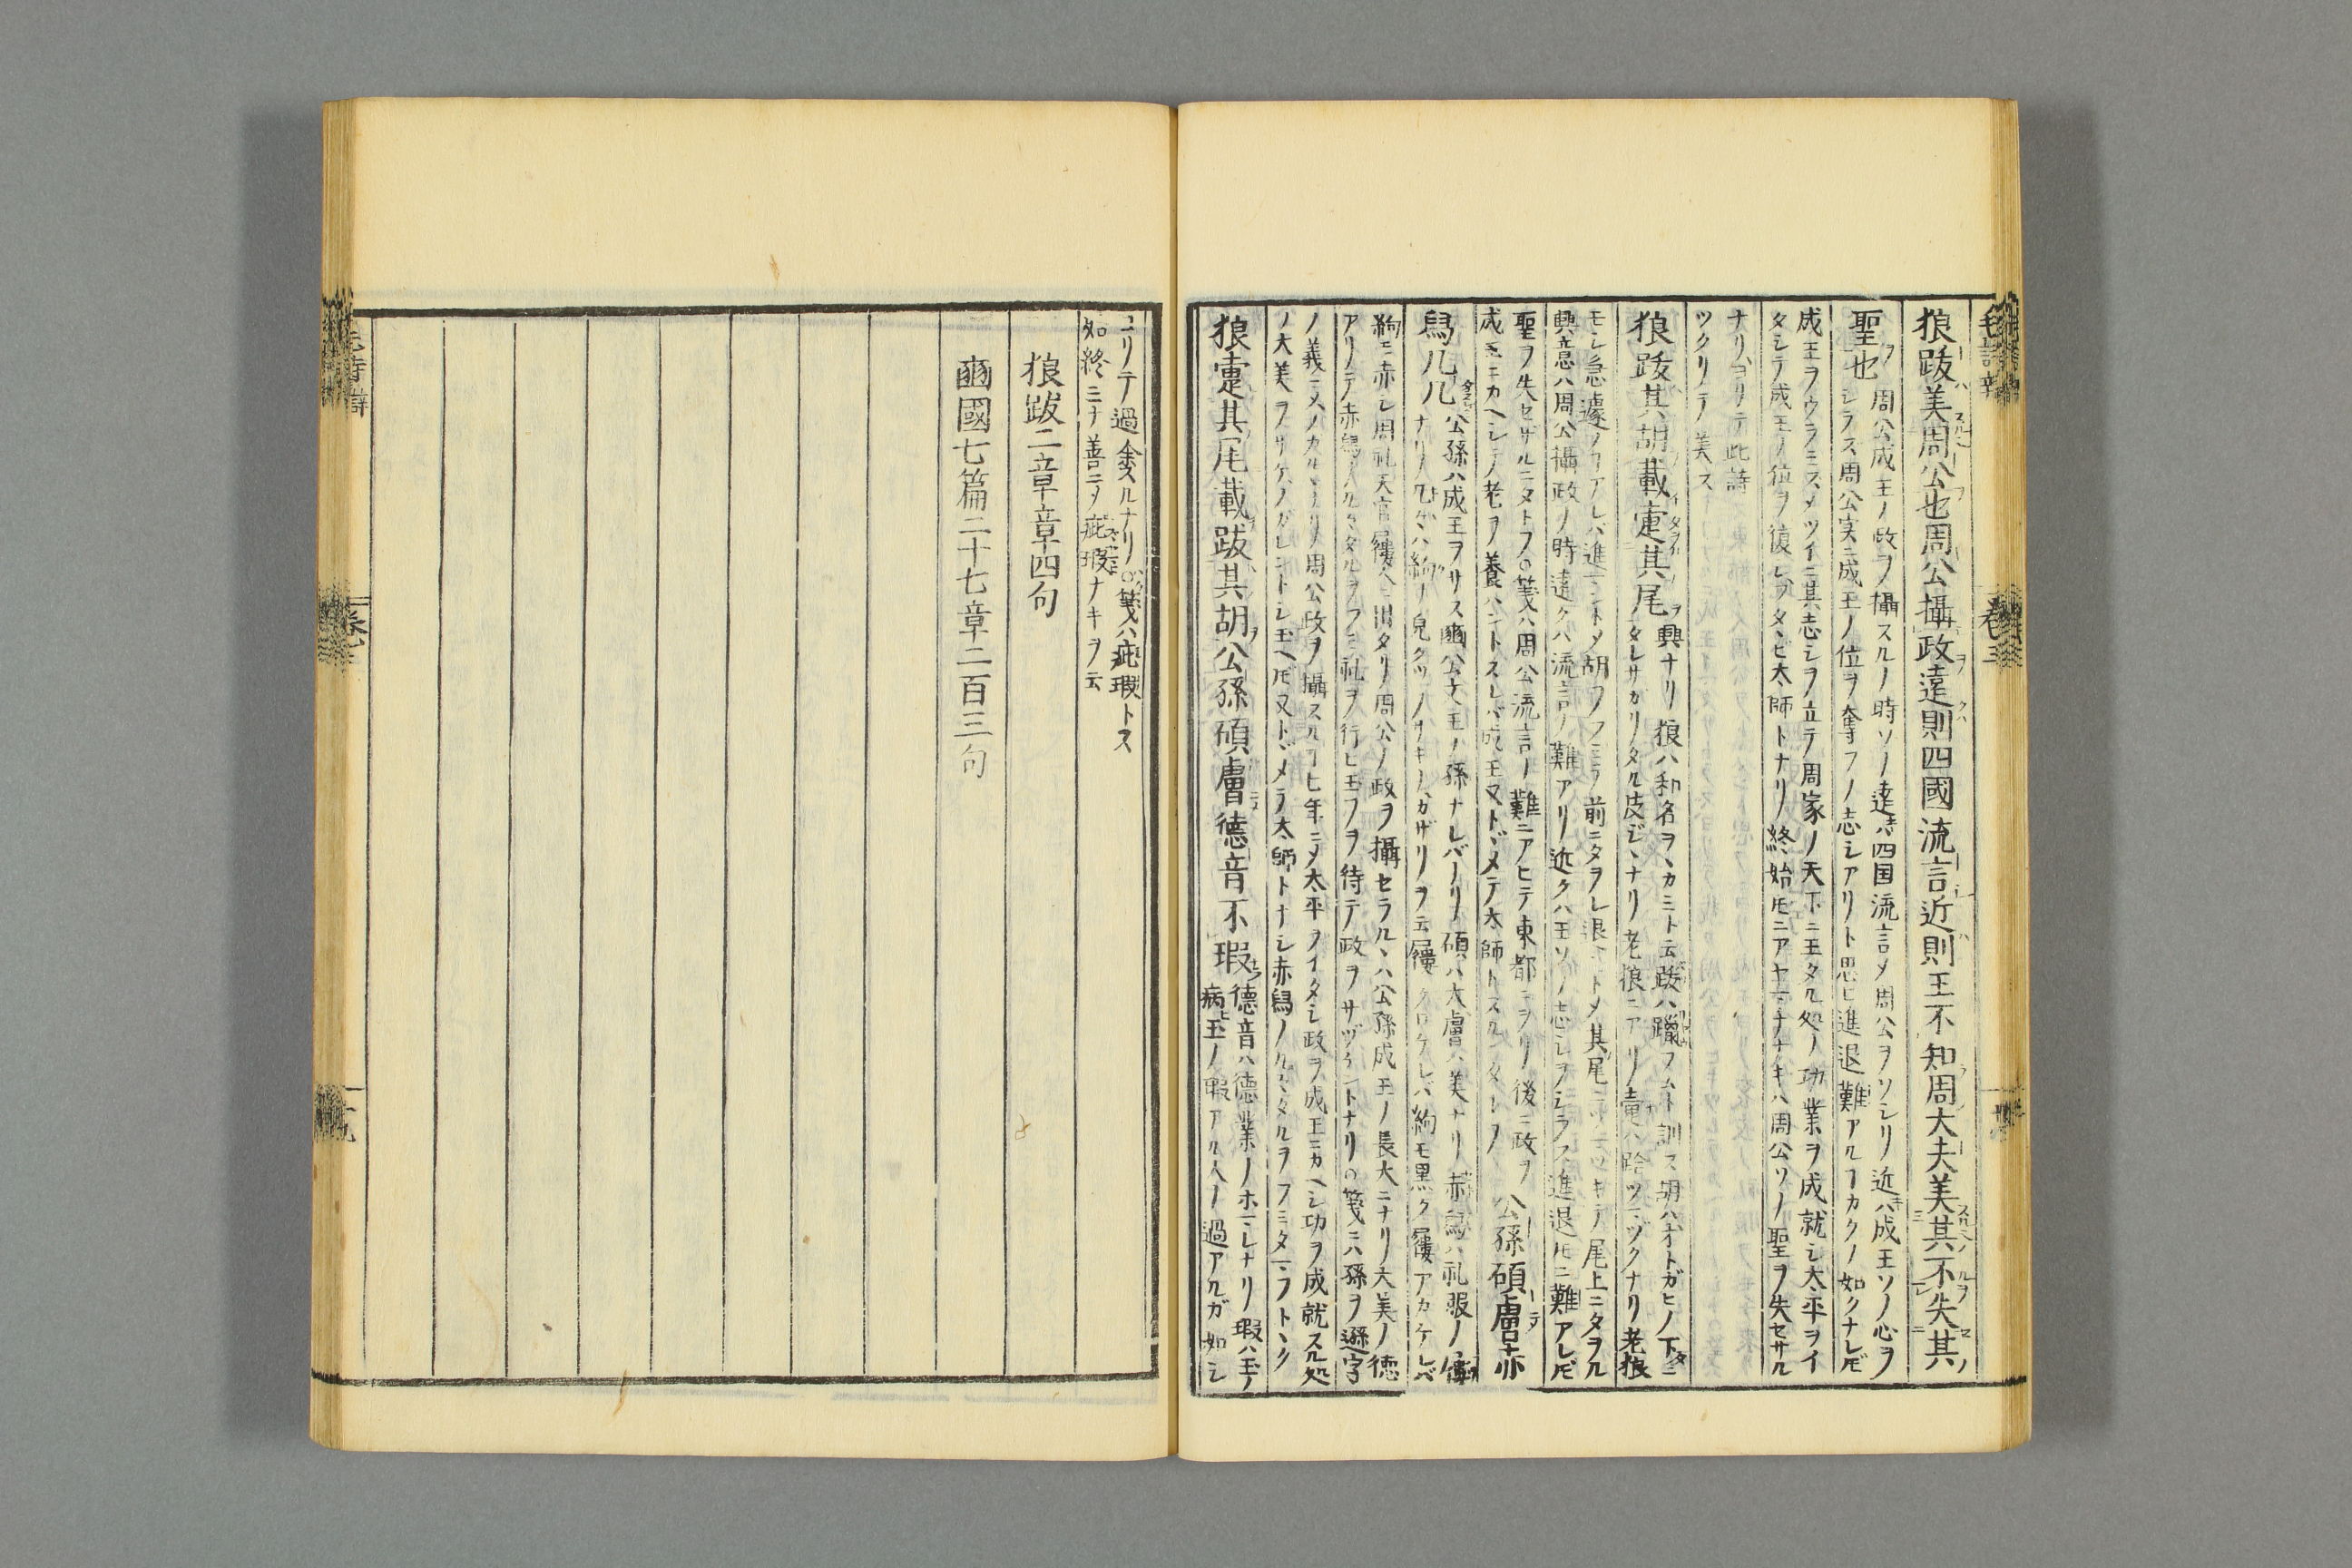 狼跋美周公也周公攝政遠則四國流言近則王不知周大夫美其不失其
聖也
周公成王ノ政ヲ攝スルノ時ソノ遠ハ四国流言メ周公ヲソシリ近ハ成王ソノ心ヲ
シラス周公実ニ成王ノ位ヲ奪フノ志シアリト思ヒ進退難アルヿカクノ如クナレ𪜈
成王ヲウラミスメツイニ其志シヲ立テ周家ノ天下ニ王タル処ノ功業ヲ成就シ太平ヲイ
タシテ成王ノ位ヲ復シフタヽビ太師トナリ終始𪜈ニアヤマチナキハ周公ソノ聖ヲ失セサル
ナリヨリテ此詩
ツクリテ美ス
狼跋其胡載疐其尾
興ナリ狼ハ和名ヲヽカミト云跋ハ躐フムト訓ス胡ハオトガヒノ下タニ
タレサカリタル皮ビヽナリ老狼ニアリ疐ハ跲ツマヅクナリ老狼
モシ急遽ノヿアレバ進マントメ胡ヲフミテ前ニタヲレ退カントメ其尾ニツマツキテ尾上ニタヲル
興意ハ周公攝政ノ時遠クハ流言ノ難アリ近クハ王ソノ志シヲシラス進退𪜈ニ難アレ𪜈
聖ヲ失セザルニタトフ○箋ハ周公流言ノ難ニアヒテ東都ニヲリ後ニ政ヲ
成王ニカヘシテ老ヲ養ハントスレバ成王又トヾメテ太師トス
公孫碩膚赤
舄几几
公孫ハ成王ヲサス豳公大王ノ孫ナレバナリ碩ハ大膚ハ美ナリ赤舄ハ礼服ノ
ナリ几几ハ絇ノ皃クツノサキノカザリヲ云屨クロケレバ絇モ黒ク屨アカケレバ
絇モ赤シ周礼天官屨人ニ出タリ周公ノ政ヲ攝セラルヽハ公孫成王ノ長大ニナリ大美ノ徳
アリテ赤舄ノ礼ヲ行ヒ玉フヲ待テ政ヲサヅケントナリ○箋ニハ孫ヲ遜字
ノ義ニメノカルヽナリ周公政ヲ攝スルヿ七年ニメ太平ヲイタシ政ヲ成王ニカヘシ功ヲ成就スル処
ノ大美ヲサケノガレントシ玉ヘ𪜈又トヾメラ太師トナシ赤舄ノ
狼疐其尾載跋其胡公孫碩膚德音不瑕
德音ハ德業ノホマレナリ瑕ハ玉ノ
病玉ノ瑕アルハ人ノ過アルガ如シ
ヨリテ過ルナリ○箋ハ疵瑕トス
始終ミナ善ニメ疵瑕ナキヲ云
狼跋二章章四句
豳國七篇二十七章二百三句